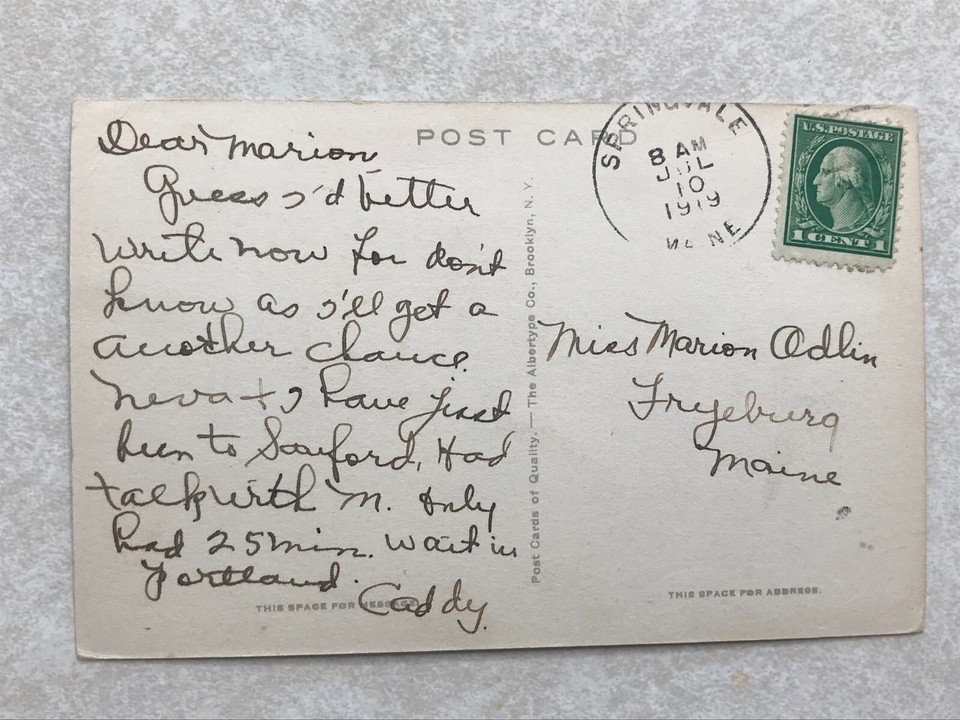 Dear Marion,
Guess I'd better
write now for don't
know as I'll get a
another chance.
Neva + I have just
been to Sanford, Had
talk with M. Only
had 25 min. wait in
Portland.
Caddy.
THIS SPACE FOR MESSAGE
POST CARD
Post Cards of Quality. — The Albertype Co., Brooklyn, N. Y.
SPRINGVALE
8 AM
JUL
10
1919
MAINE
U.S. POSTAGE
1 CENT 1
Miss Marion Odlin
Fryeburg
Maine
THIS SPACE FOR ADDRESS.